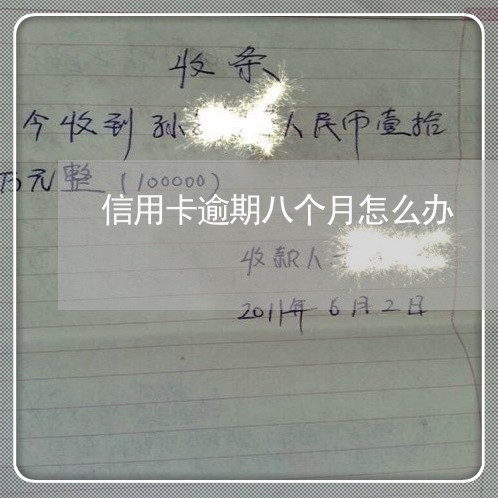 收条
今收到孙 人民币壹拾
万元整(100000)
信用卡逾期八个月怎么办
收款人
2011年6月2日